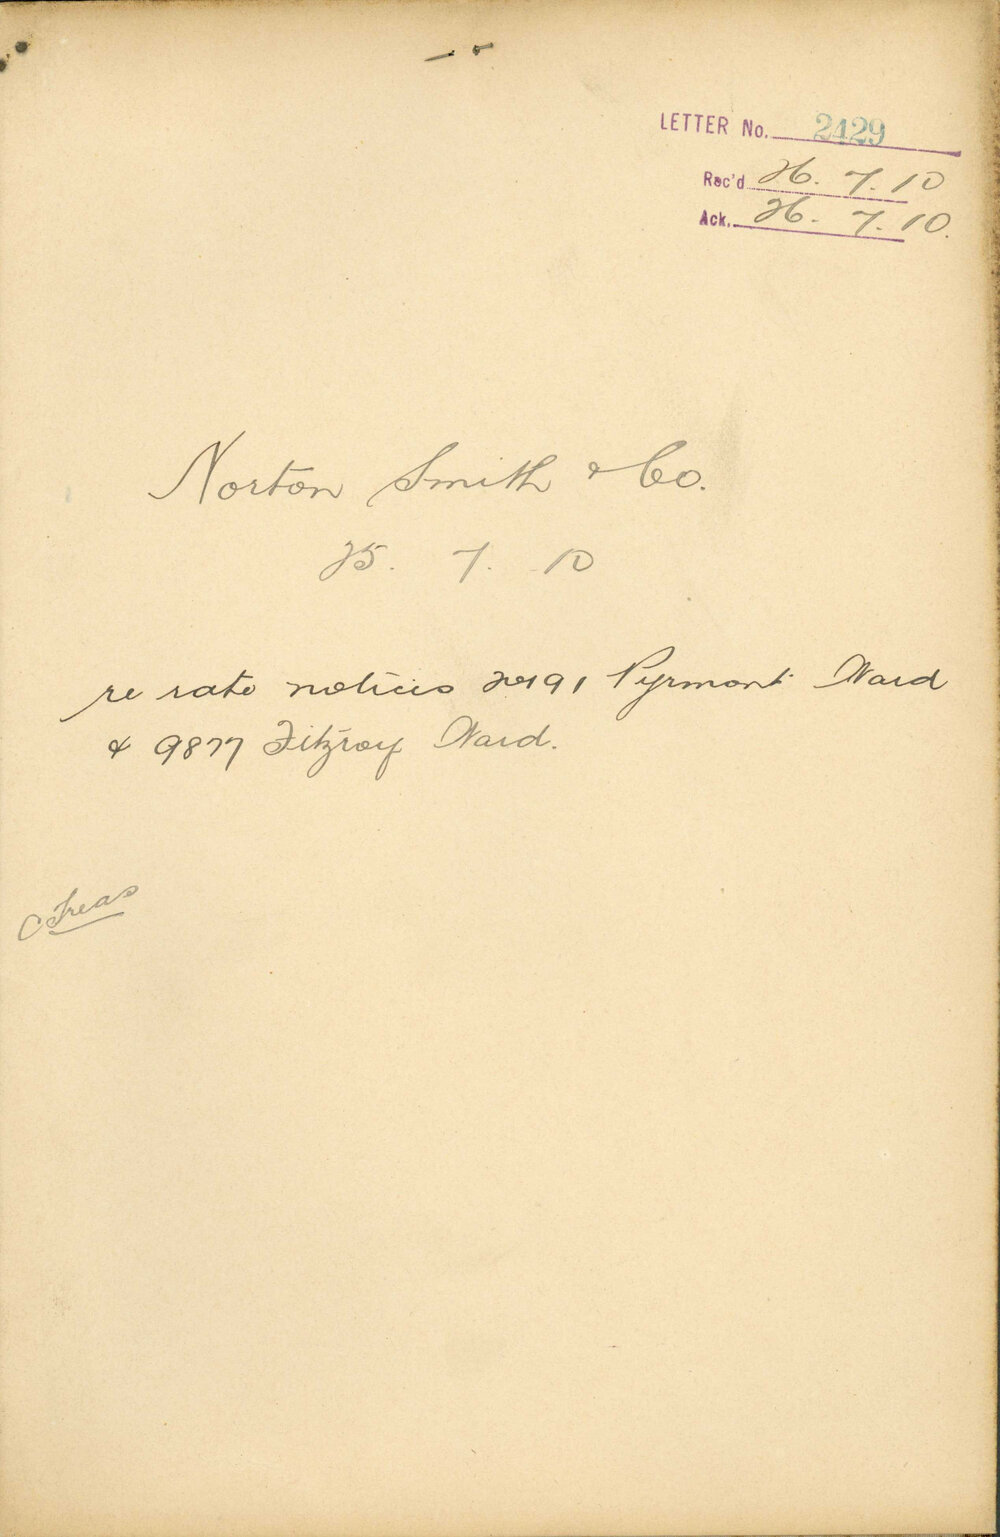 LETTER No. 2429
Rec'd 26. 7. 10
Ack. 26. 7. 10.
Norton Smith & Co.
25. 7. 10
re rate notices Pyrmont Ward
& 9877 Fitzroy Ward.
C Treas